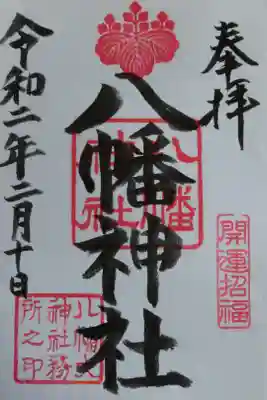 奉拝
開運招福
八幡神社
八幡神社
令和二年二月十日
八幡大
神社務
所之印